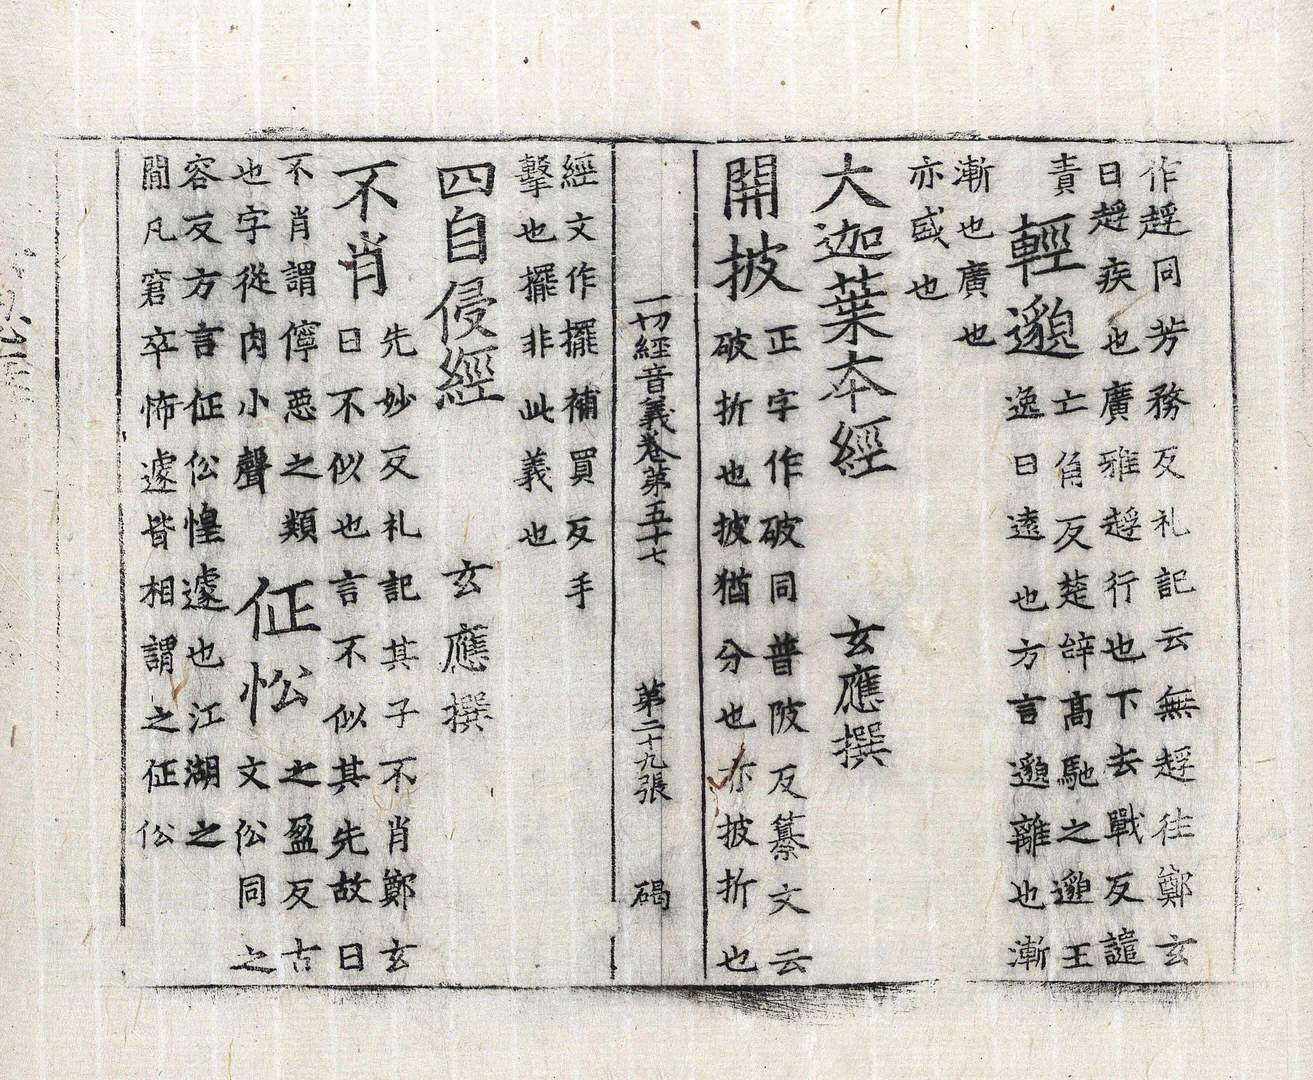 作䟔同芳務反礼記云無䟔往鄭玄
曰䟔疾也廣雅䟔行也下去戰反讉
責
輕邈
亡角反楚辝高馳之邈王
逸曰遠也方言邈離也漸
漸也廣也
亦盛也
大迦葉夲經 玄應撰
開披
正字作破同普陂反纂文云
破折也披猶分也亦披折也
一切經音義卷第五十七 第二十九張 碣
經文作擺補買反手
擊也擺非此義也
四自侵經 玄應撰
不肖
先妙反礼記其子不肖鄭玄
曰不似也言不似其先故曰
不肖謂儜惡之類
也字從肉小聲
佂忪
之盈反古
文伀同之
容反方言佂伀惶遽也江湖之
閒凡窘卒怖遽皆相謂之佂伀